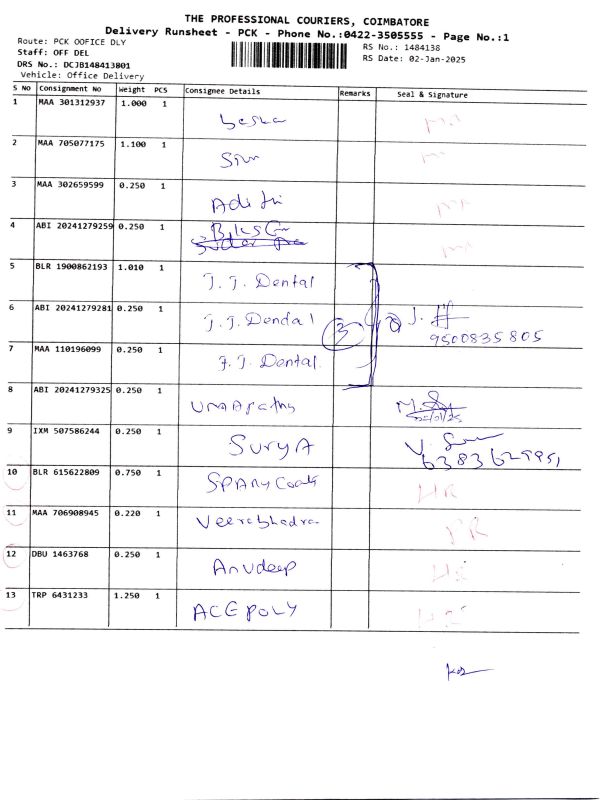 THE PROFESSIONAL COURIERS, COIMBATORE
Delivery Runsheet - PCK - Phone No.:0422-3505555 - Page No.:1
Route: PCK OOFICE DLY
RS No.: 1484138
Staff: OFF DEL
RS Date: 02-Jan-2025
DRS No.: DCJB148413801
Vehicle: Office Delivery
S No Consignment No Weight PCS Consignee Details Remarks Seal & Signature
1 MAA 301312937 1.000 1
2 MAA 705077175 1.100 1
3 MAA 302659599 0.250 1 Aditi
4 ABI 20241279259 0.250 1
5 BLR 1900862193 1.010 1 J.J. Dental
6 ABI 20241279281 0.250 1 J.J. Dendal 3 J.
9500835805
7 MAA 110196099 0.250 1 J.J. Dental
8 ABI 20241279325 0.250 1 UMApathy
9 IXM 507586244 0.250 1 SURYA
10 BLR 615622809 0.750 1 SPANy Coats HR
11 MAA 706908945 0.220 1 Veerabhadra
12 DBU 1463768 0.250 1 Anudeep
13 TRP 6431233 1.250 1 ACE POLY